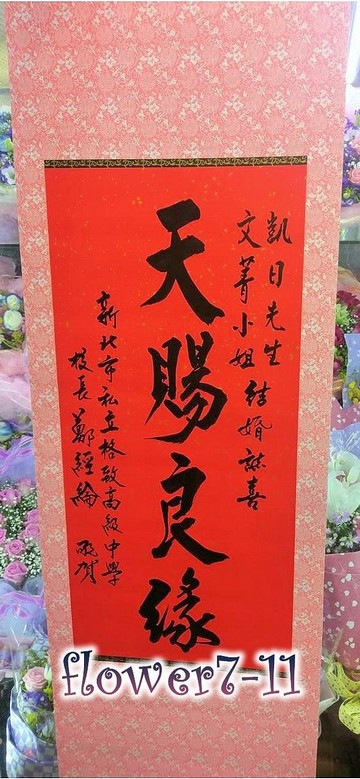 凱日先生
文菁小姐結婚誌喜
天賜良緣
新北市私立格致高級中學
校長鄭經綸敬賀
flower7-11